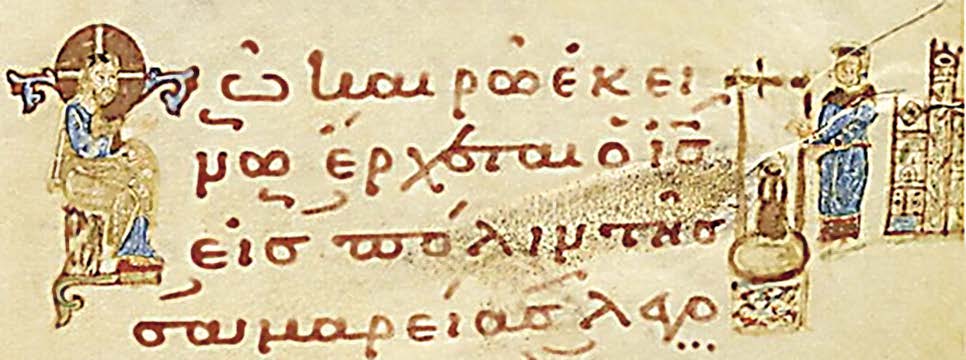 Τῶ καιρῶ ἐκεί
νω ἔρχεται ὁ ι̅ς̅
εἰς πόλιν τῆς
σαμαρείας λεγο